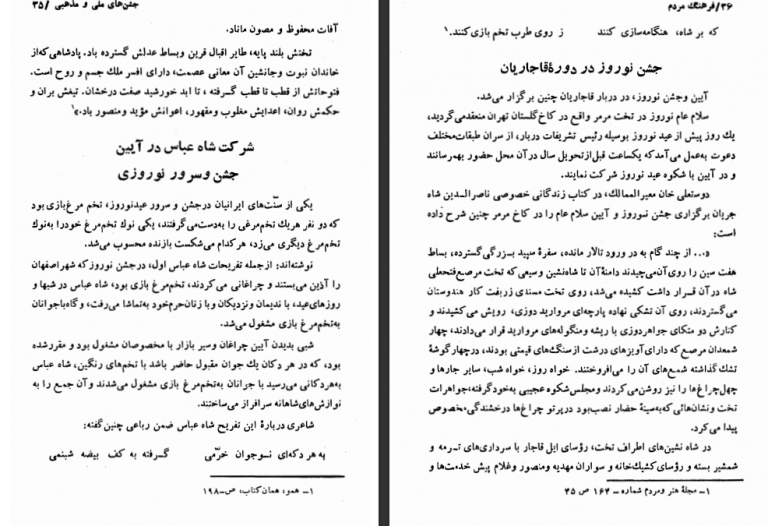 جشن‌های ملی و مذهبی /۳۵
آفات محفوظ و مصون ماناد.
تختش بلند پایه، طایر اقبال قرین وبساط عدلش گسترده باد. پادشاهی که از
خاندان نبوت وجانشین آن معانی عصمت، دارای افسر ملك جسم و روح است.
فتوحاتش از قطب تا قطب گرفته، تا ابد خورشید صفت درخشان. تیغش بران و
حکمش روان، اعدایش مغلوب ومقهور، اعوانش مؤید ومنصور باد.»۱
شرکت شاه عباس در آیین
جشن و سرور نوروزی
یکی از سنّت‌های ایرانیان درجشن و سرور عیدنوروز، تخم مرغ‌بازی بود
که دو نفر هریك تخم‌مرغی را به‌دست می‌گرفتند، یکی نوك تخم‌مرغ خودرا به‌نوك
تخم‌مرغ دیگری می‌زد، هرکدام می‌شکست بازنده محسوب می‌شد.
نوشته‌اند: ازجمله تفریحات شاه عباس اول، درجشن نوروز که شهر اصفهان
را آذین می‌بستند و چراغانی می‌کردند، تخم‌مرغ بازی بود، شاه عباس در شبها و
روزهای‌عید، با ندیمان ونزدیکان و با زنان حرم‌خود به‌تماشا می‌رفت، وگاه باجوانان
به‌تخم‌مرغ بازی مشغول می‌شد.
شبی بدیدن آیین چراغان وسیر بازار با مخصوصان مشغول بود و مقرر شده
بود، که در هر دکان یك جوان مقبول حاضر باشد با تخم‌های رنگین، شاه عباس
به‌هردکانی می‌رسید با جوانان به‌تخم‌مرغ بازی مشغول می‌شدند وآن جمع را به
نوازش‌های‌شاهانه سرافراز می‌ساختند.
شاعری دربارهٔ این تفریح شاه عباس ضمن رباعی چنین‌گفته:
به هر دکه‌ای نوجوان خرّمی گرفته به کف بیضه شبنمی
۱- همو، همان کتاب، ص-۱۹۸
۳۶/فرهنگ مردم
که بر شاه، هنگامه‌سازی کنند ز روی طرب تخم‌بازی کنند.۱
جشن نوروز در دورهٔ قاجاریان
آیین وجشن نوروز، در دربار قاجاریان چنین برگزار می‌شد.
سلام عام نوروز در تخت مرمر واقع در کاخ گلستان تهران منعقدمی‌گردید،
یك روز پیش از عید نوروز بوسیله رئیس تشریفات دربار، از سران طبقات‌مختلف
دعوت به‌عمل می‌آمدکه یکساعت قبل‌ازتحویل سال درآن محل حضور بهمرسانند
و در آیین با شکوه عید نوروز شرکت نمایند.
دوستعلی خان معیرالممالك، در کتاب زندگانی خصوصی ناصرالدین شاه
جریان برگزاری جشن نوروز و آیین سلام عام را در کاخ مرمر چنین شرح داده
است:
«... از چند گام به در ورود تالار مانده، سفرهٔ سپید بزرگی گسترده، بساط
هفت سین را روی‌آن‌می‌چیدند دامنهٔ‌آن تا شاه‌نشین وسیعی که تخت مرصع فتحعلی
شاه درآن قرار داشت کشیده می‌شد، روی تخت مسندی زربفت کار هندوستان
می‌گستردند، روی آن تشکی نهاده پارچه‌ای مروارید دوزی، رویش می‌کشیدند و
کنارش دو متکای جواهردوزی با ریشه ومنگوله‌های مروارید قرار می‌دادند، چهار
شمعدان مرصع که دارای‌آویزهای درشت ازسنگ‌های قیمتی بودند، درچهارگوشهٔ
تشك‌گذاشته شمع‌های آن را می‌افروختند. خواه روز، خواه شب، سایر جارها و
چهل‌چراغ‌ها را نیز روشن‌می‌کردند ومجلس‌شکوه عجیبی به‌خودگرفته، جواهرات
تخت ونشان‌هائی‌که‌به‌سینهٔ حضار نصب‌بود درپرتو چراغ‌ها درخشندگی‌مخصوص
پیدا می‌کرد.
در شاه نشین‌های اطراف تخت، رؤسای ایل قاجار با سرداری‌های ترمه و
شمشیر بسته و رؤسای کشیك‌خانه و سواران مهدیه ومنصور وغلام پیش خدمت‌ها و
۱- مجلهٔ هنر و مردم شماره- ۱۶۴ ص ۴۵